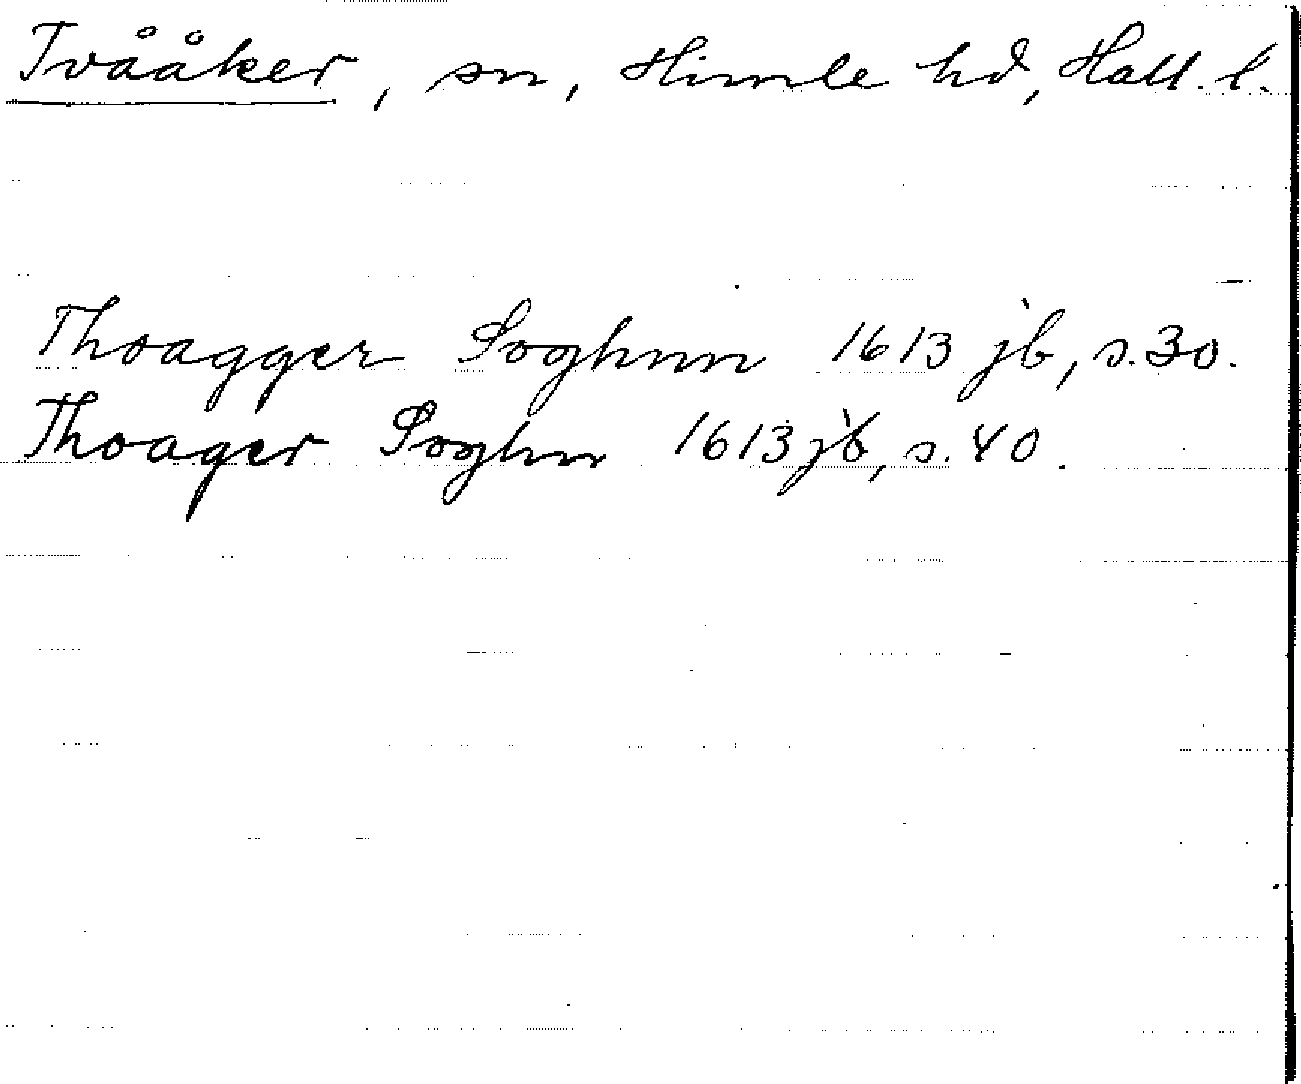 Tvååker, sn, Himle hd, Hall. l.
Thoagger Soghnn 1613 jb, s. 30.
Thoager Soghn 1613 jb, s. 40.